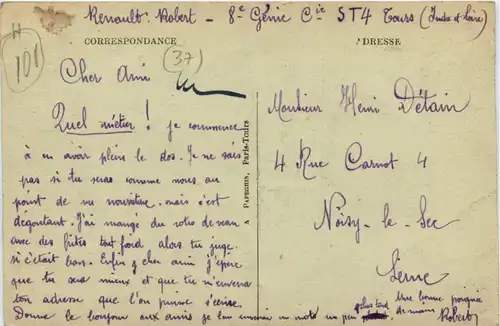 Renault Robert - 8e Génie Cie ST4 Tours (Indre et Loire)
H
101
(37)
CORRESPONDANCE
ADRESSE
Cher Ami
Quel métier ! je commence
à en avoir plein le dos. Je ne sais
pas si tu seras comme nous au
point de vue nourriture. mais c'est
dégoutant. J'ai mangé du rotis de veau
avec des frites tout froid alors tu juge
si c'était bon. Enfin cher ami j'espère
que tu seras mieux et que tu m'enverra
ton adresse que l'on puisse s'écrire.
Donne le bonjour aux amis je leur enverrai un mot un peu plus tard
Une bonne poignée
de main
Robert
A PAPEGHIN, Paris-Tours
Monsieur Henri Détain
4 Rue Carnot 4
Noisy-le-Sec
Seine